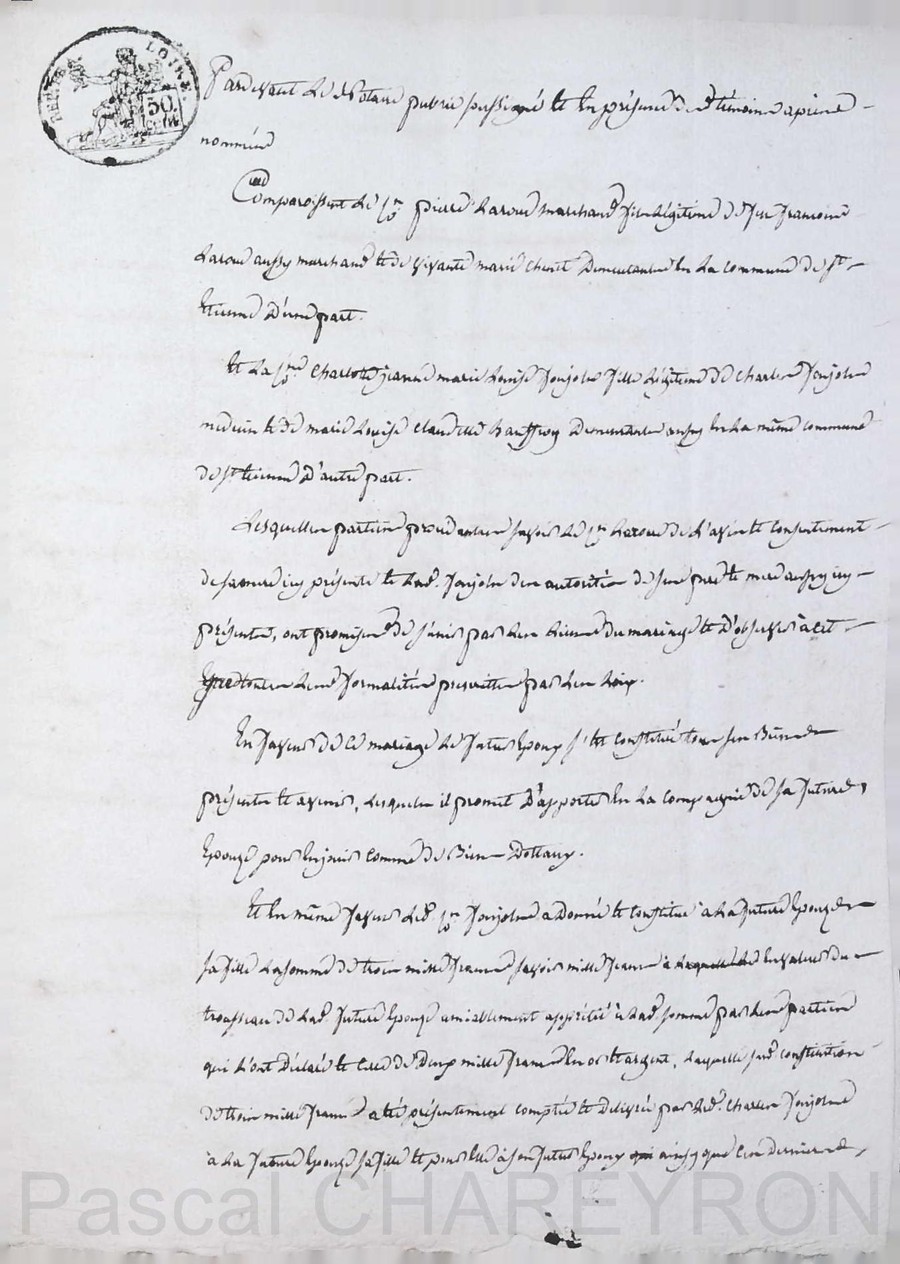 RÉP. FRA. LOIRE.
50 CEN.
Pardevant Le Notaire public soussigné Et En présence des témoins aprés
nommés
Comparoissent Le Sr pierre Larou marchand fils Légitime de feu francois
Larou aussy marchand Et de vivante marie Demeurants En La commune de St
Etienne D'une part.
Et La charlotte jeanne marie Louise fille Légitime de Charles
medecin Et de marie Louise claudine Demeurants aussy En La même commune
de St Etienne D'autre part.
Lesquelles parties procédantes savoir Le Sr Larou de L'avis Et Consentement
de sa mere icy présente Et Lad. des autorités de ses pere Et mere aussy icy
présents, ont promis de s'unir par Les Liens du mariage Et D'observer à cet
Egard toutes Les formalités prescrittes par Les Loix.
En faveur de Ce mariage Le futur Epoux s'Est Constitué tous ses Biens
présents Et avenir, Lesquels il promet D'apporter En La Compagnie de sa future
Epouze pour En jouir Comme de Biens Dottaux.
Et En même faveur Led. Sr a Donné Et Constitué à La future Epouze
sa fille La somme de trois mille francs savoir mille francs à Laquelle Les valeurs du
trousseau de Lad. future Epouze amiablement apprécié à Lad. somme par Les parties
qui L'ont Déclaré Et Celle de Deux mille francs En or Et argent, Laquelle susd. constitution
de trois mille francs a Eté présentement comptée Et delivrée par Led. Charles
à La future Epouze sa fille Et pour Elle à son futur Epoux ainsy que Ces derniers
Pascal CHAREYRON